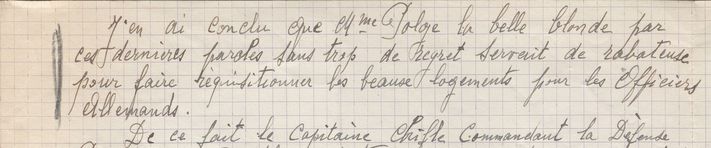 J'en ai conclu que Mme Polge la belle blonde par
ces dernières paroles sans trop de regret servait de rabateuse
pour faire réquisitionner les beause logements pour les Officiers
Allemands.
De ce fait le Capitaine Chifle Commandant la Défense